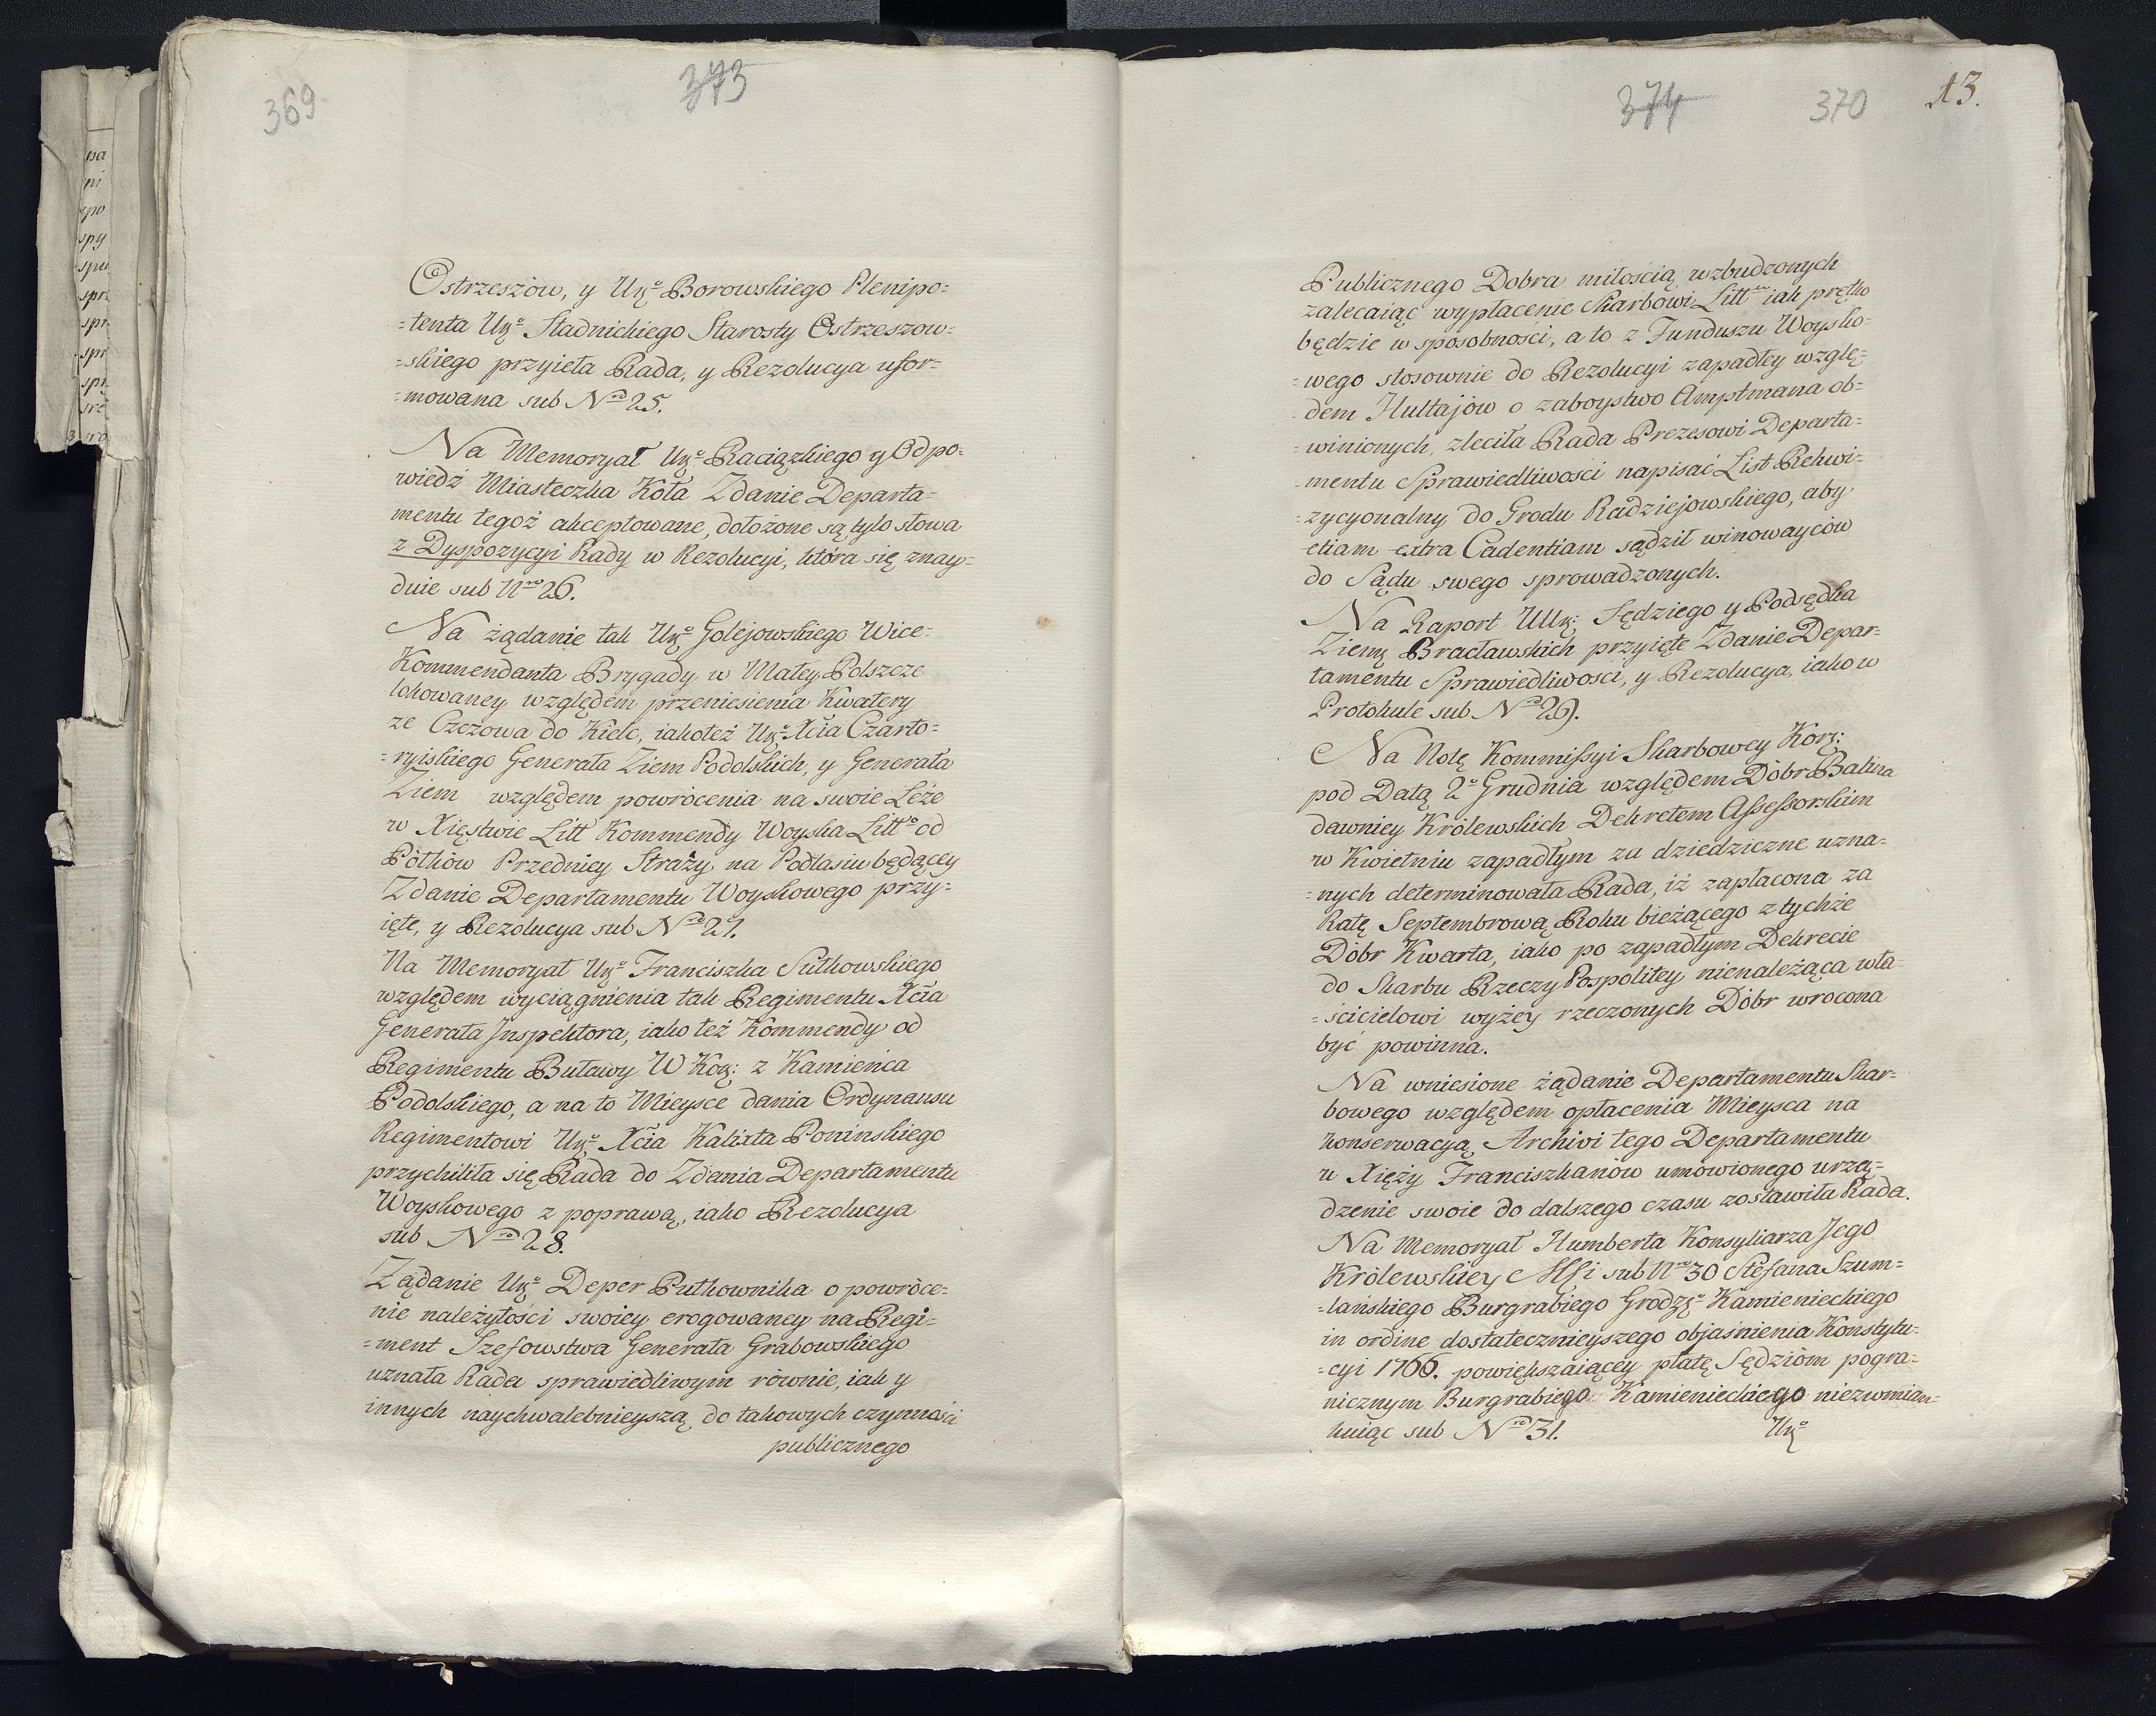 369
373
Ostrzeszów, y Ur̃o Borowskiego Plenipo=
=tenta Ur̃o Stadnickiego Starosty Ostrzeszow=
=skiego przyieła Rada, y Rezolucya ufor=
=mowana sub Nro 25.
Na Memoryał Ur̃o Raciązkiego y Odpo=
wiedź Miasteczka Koła Zdanie Departa=
mentu tegoż akceptowane, dołożone są tylo słowa
z Dyspozycyi Rady w Rezolucyi, która się znay=
duie sub Nro 26.
Na żądanie tak Ur̃o Golejowskiego Wice=
Kommendanta Brygady w Małey Polszcze
lokowaney względem przeniesienia Kwatery
ze Czezowa do Kielc, iakoteż Ur̃o Xcia Czarto=
=ryiskiego Generała Ziem Podolskich, y Generała
Ziem względem powrócenia na swoie Leże
w Xięstwie Litt Kommendy Woyska Litto od
Półków Przedniey Straży na Podlasiu będącey
Zdanie Departamentu Woyskowego przy=
ięte, y Rezolucya sub Nro 27.
Na Memoryał Ur̃o Franciszka Sułkowskiego
względem wyciągnienia tak Regimentu Xcia
Generała Inspektora, iako też Kommendy od
Regimentu Buławy W Kor: z Kamieńca
Podolskiego, a na to Mieysce dania Ordynansu
Regimentowi Ur̃o Xcia Kalixta Ponińskiego
przychiliła się Rada do Zdania Departamentu
Woyskowego z poprawą, iako Rezolucya
sub Nro 28.
Żądanie Ur̃o Deper Pułkownika o powróce=
nie należytości swoiey erogowaney na Regi=
=ment Szefowstwa Generała Grabowskiego
uznała Rada sprawiedliwym równie, iak y
innych naychwalebnieyszą do takowych czynności
publicznego
374
370
13.
Publicznego Dobra miłością wzbudzonych
zalecaiąc wypłacenie Skarbowi Litt iak prętko
będzie w sposobności, a to z Funduszu Woysko=
=wego stosownie do Rezolucyi zapadłey wzglę=
=dem Hultajów o zaboystwo Amptmana ob=
=winionych, zleciła Rada Prezesowi Departa=
mentu Sprawiedliwości napisać List Rekwi=
=zycyonalny do Grodu Radziejowskiego, aby
etiam extra Cadentiam sądził winowayców
do Sądu swego sprowadzonych.
Na Raport UUr: Sędziego y Podsędka
Ziemʒ Bracławskich przyięte Zdanie Depar=
tamentu Sprawiedliwości, y Rezolucya, iako w
Protokule sub Nro 29.
Na Notę Kommissyi Skarbowey Kor:
pod Datą 2o Grudnia względem Dóbr Balina
dawniey Królewskich Dekretem Assessorskim
w Kwietniu zapadłym za dziedziczne uzna=
=nych determinowała Rada, iż zapłacona za
Ratę Septembrową Roku bieżącego z tychże
Dóbr Kwarta, iako po zapadłym Dekrecie
do Skarbu Rzeczy Pospolitey nienależąca wła=
=ścicielowi wyżey rzeczonych Dóbr wrocona
być powinna.
Na wniesione żądanie Departamentu Skar=
bowego względem opłacenia Mieysca na
konserwacyą Archivi tego Departamentu
u Xięży Franciszkanów umówionego urzą=
dzenie swoie do dalszego czasu zostawiła Rada.
Na Memoryał Humberta Konsyliarza Jego
Królewskiey Mſi sub Nro 30 Stefana Szum=
=lańskiego Burgrabiego Grodzo Kamienieckiego
in ordine dostatecznieyszego objaśnienia Konstytu=
=cyi 1766. powiększaiącey płatę Sędziom pogra=
nicznym Burgrabiego Kamienieckiego niezwmian=
kuiąc sub Nro 31.
Ur̃o